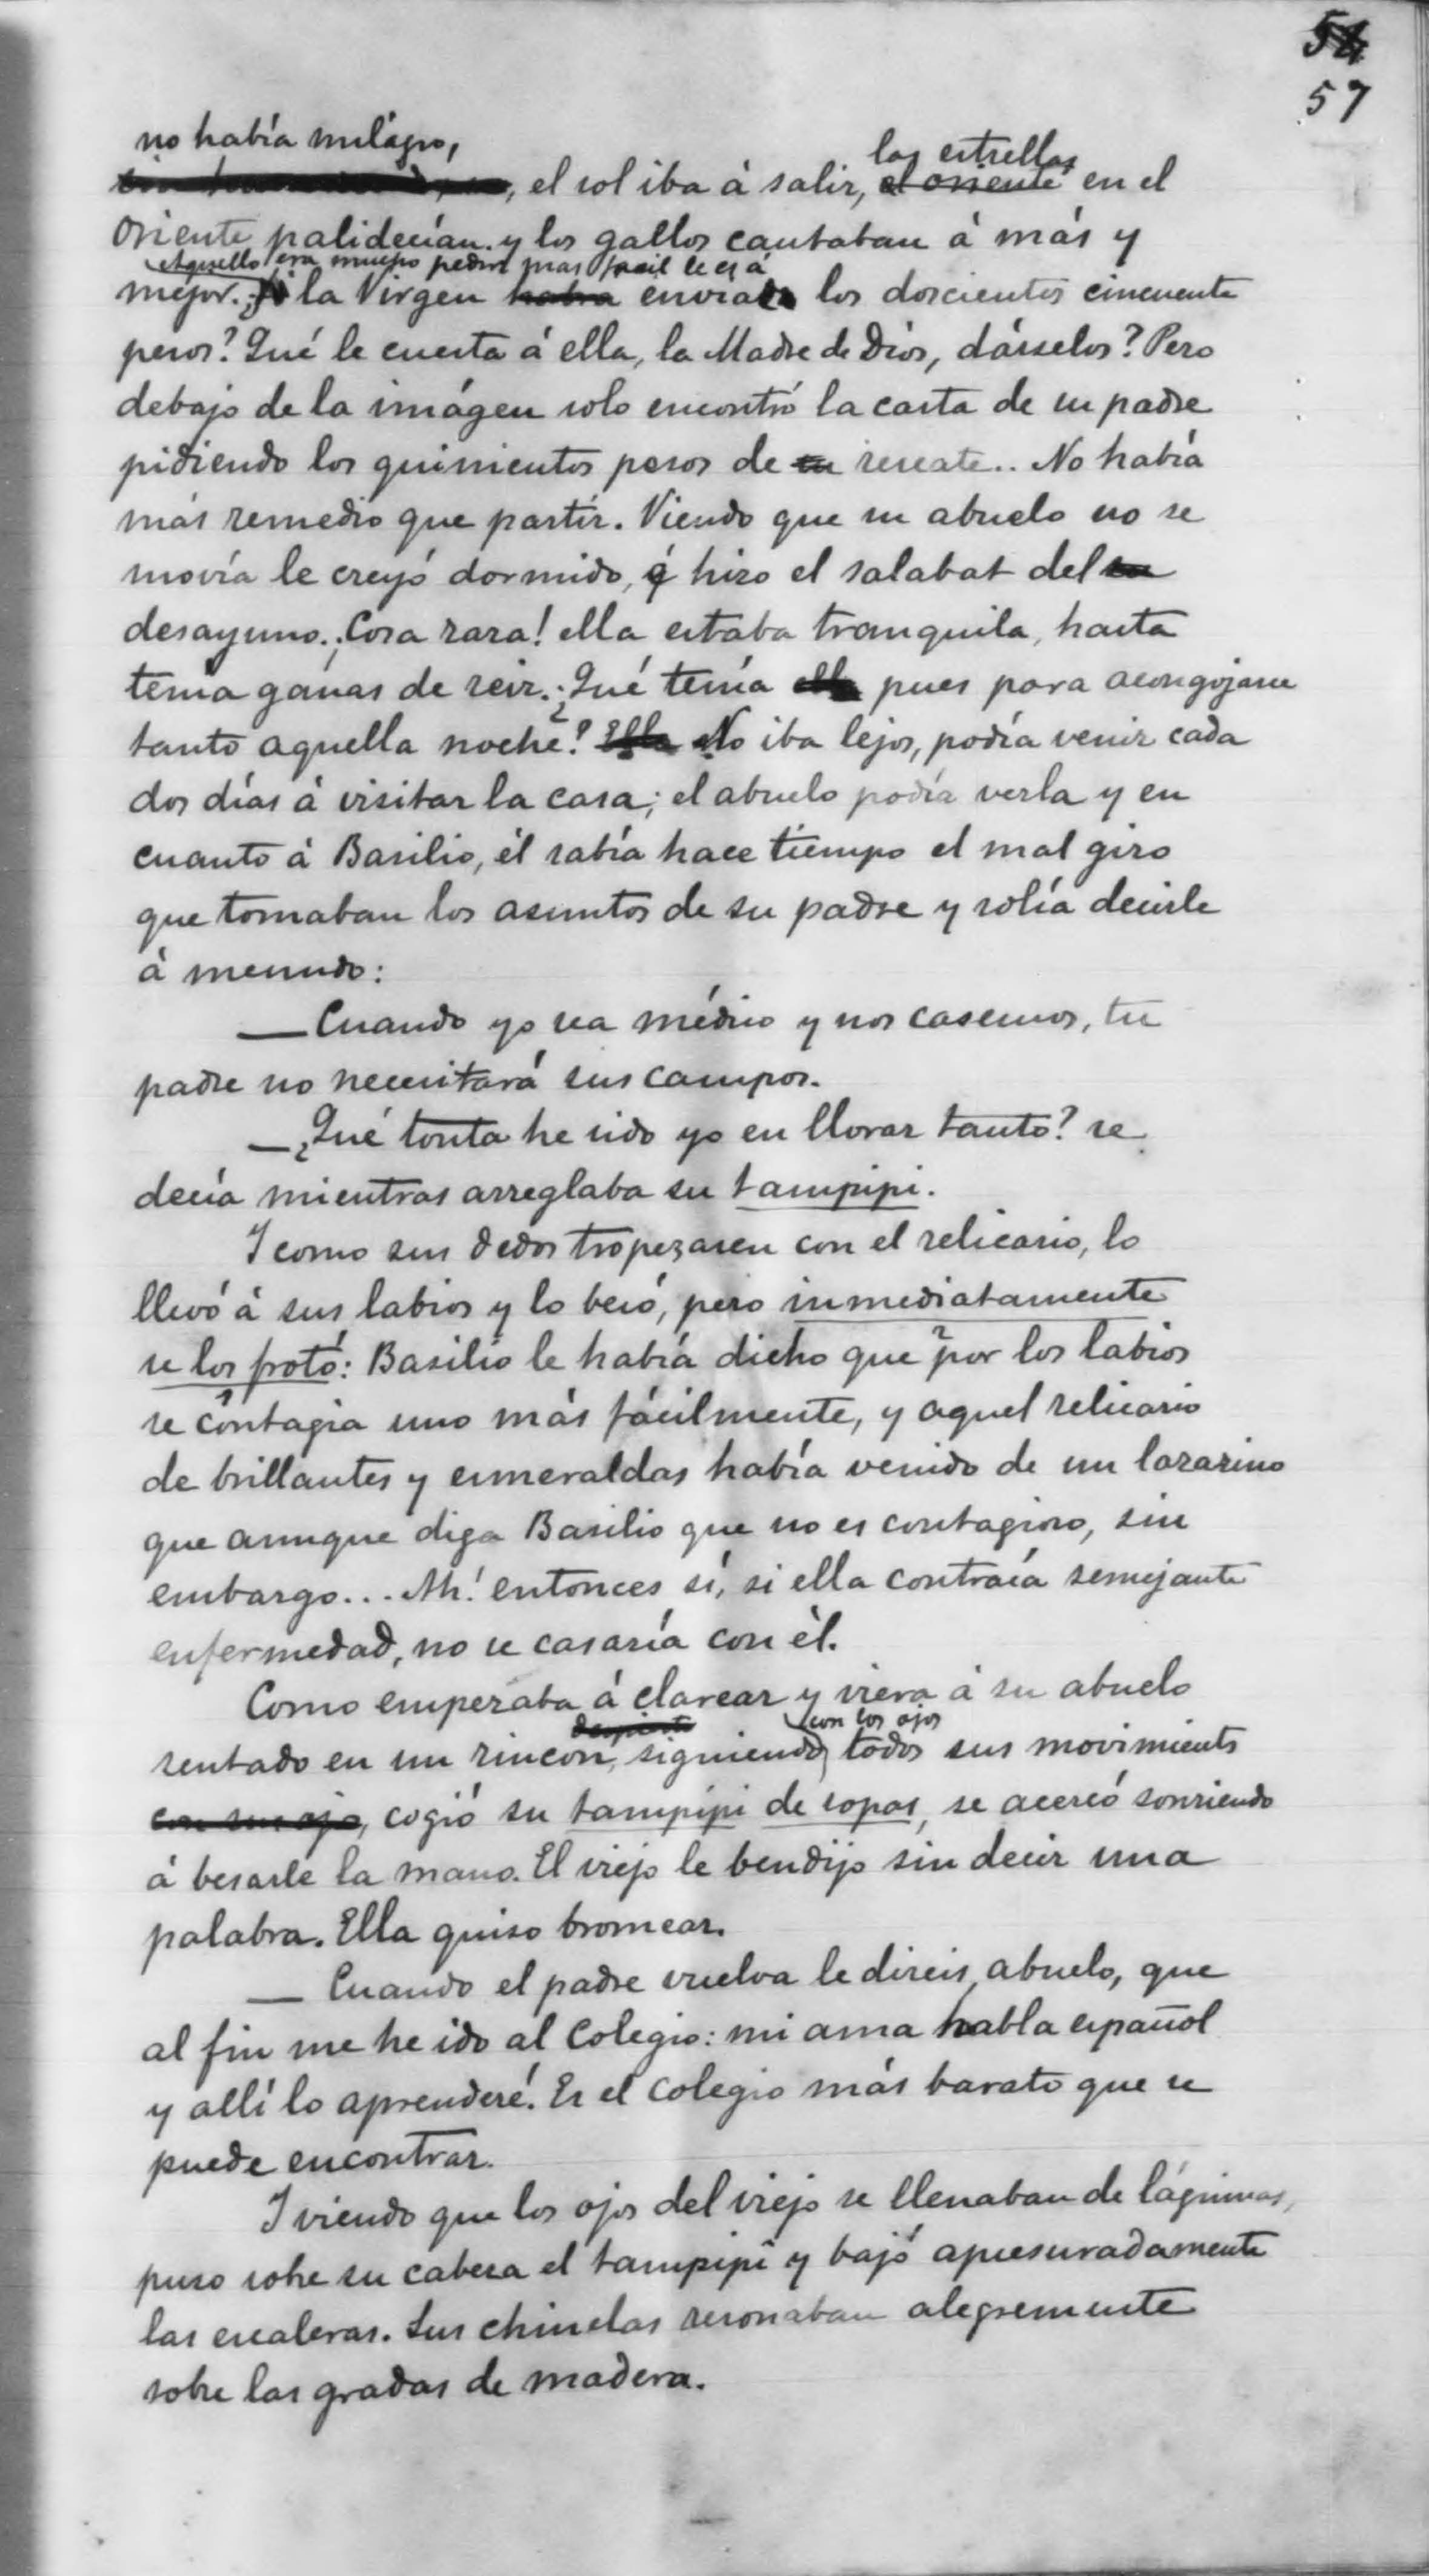 54
57
no había milagro,
las estrellas
, el sol iba á salir, el oriente en el
Oriente palidecían y los gallos cantaban á más y
Aquello era mucho pedir mas facil le es á
mejor. la Virgen habra enviar los doscientos cincuenta
pesos? Qué le cuesta á ella, la Madre de Dios, dárselos? Pero
debajo de la imágen solo encontró la carta de su padre
pidiendo los quinientos pesos de su rescate.. No había
más remedio que partir. Viendo que su abuelo no se
movía le creyó dormido, é hizo el salabat del su
desayuno. ¡Cosa rara! ella estaba tranquila, hasta
tenía ganas de reir. ¿Qué tenía ella pues para acongojarse
tanto aquella noche? Ella No iba lejos, podía venir cada
dos días á visitar la casa; el abuelo podía verla y en
cuanto á Basilio, él sabía hace tiempo el mal giro
que tomaban los asuntos de su padre y solía decirle
á menudo:
— Cuando yo sea médico y nos casemos, tu
padre no necesitará sus campos.
— ¿Qué tonta he sido yo en llorar tanto? se
decía mientras arreglaba su tampipi.
Y como sus dedos tropezasen con el relicario, lo
llevó á sus labios y lo besó, pero inmediatamente
se los frotó: Basilio le había dicho que por los labios
se contagia uno más fácilmente, y aquel relicario
de brillantes y esmeraldas había venido de un lazarino
que aunque diga Basilio que no es contagioso, sin
embargo... Ah! entonces sí, si ella contraía semejante
enfermedad, no se casaría con él.
Como empezaba á clarear y viera á su abuelo
despierto con los ojos
sentado en un rincon, siguiendo todos sus movimients
con sus ojo, cogió su tampipi de ropas, se acercó sonriendo
á besarle la mano. El viejo le bendijo sin decir una
palabra. Ella quiso bromear.
— Cuando el padre vuelva le direis, abuelo, que
al fin me he ido al Colegio: mi ama habla español
y allí lo aprenderé. Es el colegio más barato que se
puede encontrar.
Y viendo que los ojos del viejo se llenaban de lágrimas,
puso sobre su cabeza el tampipi y bajó apresuradamente
las escaleras. Sus chinelas resonaban alegremente
sobre las gradas de madera.